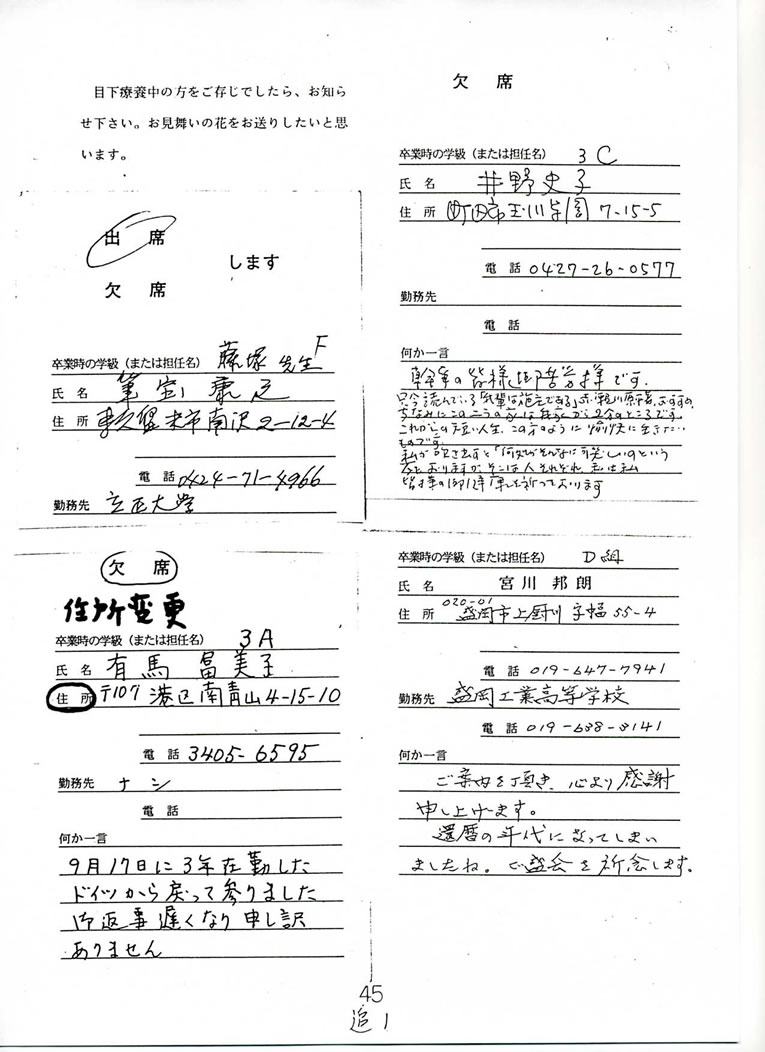 目下療養中の方をご存じでしたら、お知ら
せ下さい。お見舞いの花をお送りしたいと思
います。
出席
します
欠席
卒業時の学級（または担任名） 藤塚先生 F
氏名 康之
住所 東久留米市南沢2-12-4
電話 0424-71-4966
勤務先 立正大学
欠席
住所変更
卒業時の学級（または担任名） 3A
氏名 有馬 冨美子
住所 〒107 港区南青山4-15-10
電話 3405-6595
勤務先 ナシ
電話
何か一言
9月17日に3年在勤した
ドイツから戻って参りました
御返事遅くなり申し訳
ありません
欠席
卒業時の学級（または担任名） 3C
氏名 井野史子
住所 町田市玉川学園7-15-5
電話 0427-26-0577
勤務先
電話
何か一言
幹事の皆様御苦労様です。
只今読んでいる「気障は施主である」赤瀬川原平著、おすすめ
ちなみにこの二つの
これからの短い人生、この方のように愉快に生きたい…
ものです
私が 出すと「何がそんなに可笑しいのという
おりますが、そこは人それぞれ、私は私
皆様の御健康を祈っております
卒業時の学級（または担任名） D組
氏名 宮川邦朗
住所 020-01 盛岡市上厨川字幅55-4
電話 019-647-7941
勤務先 盛岡工業高等学校
電話 019-638-3141
何か一言
ご案内を頂き、心より感謝
申し上げます。
還暦の年代になってしまい
ましたね。ご盛会を祈念します。
45
追1